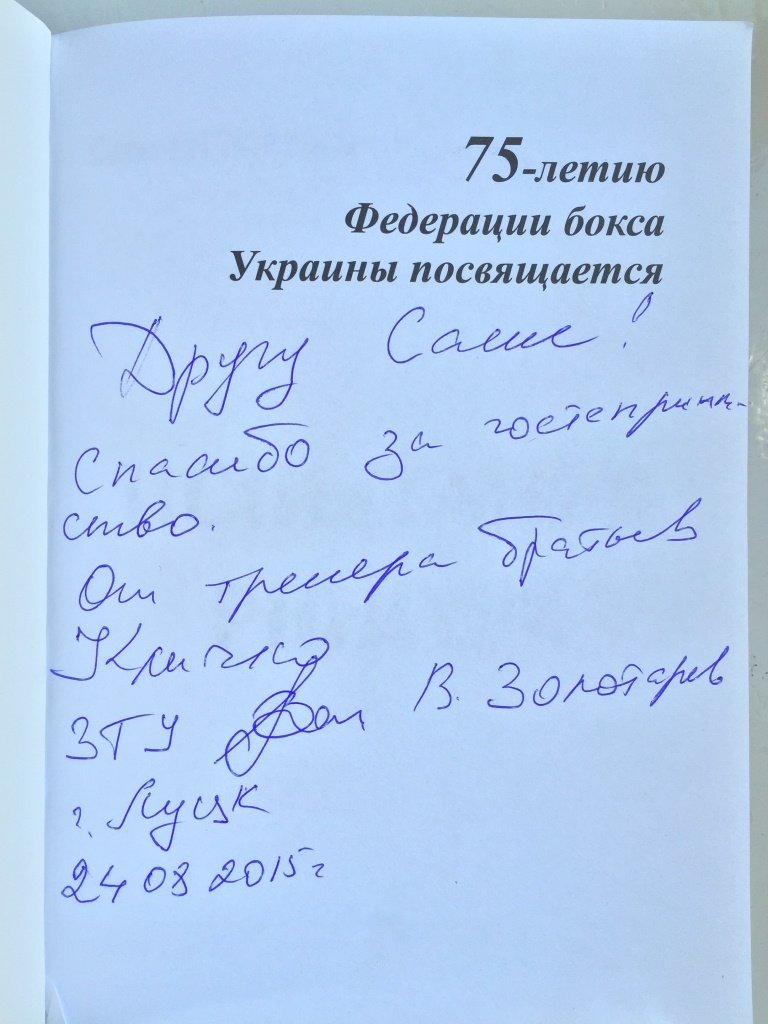 75-летию
Федерации бокса
Украины посвящается
Другу Саше!
Спасибо за гостеприим-
ство.
От тренера братьев
Кличко
ЗТУ В. Золотарев
г. Луцк
24 08 2015г